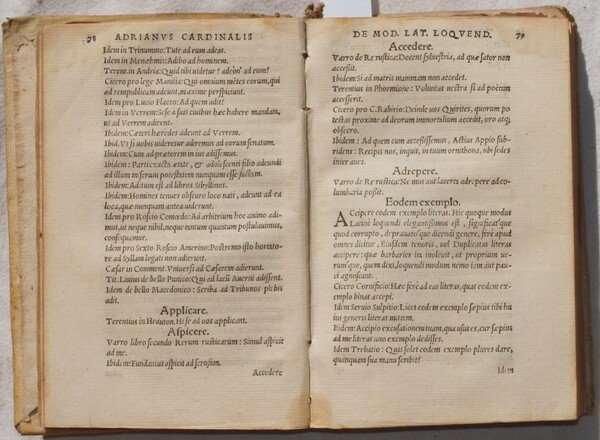 78 ADRIANVS CARDINALIS
Idem in Trinummo: Tute ad eum adeas.
Idem in Menæhmis: Adibo ad hominem.
Terent. in Andria: Quid tibi videtur? adeon' ad eum?
Cicero pro lege Manilia: Qui omnium meter eorum, qui
ad rempublicam adeunt, maxime perspiciunt.
Idem pro Lucio Flacco: Ad quem adit?
Idem in Verrem: Sese a suis ciuibus hæc habere mandata,
ut ad Verrem adirent.
Ibidem: Cæteri hæredes adeunt ad Verrem.
Ibid. Vt si uobis uideretur adiremus ad eorum senatum.
Ibidem: Cum ad prætorem in ius adissemus.
Ibidem: Parti exacta ætate, & adolescenti filio adeundi
ad illum miserum potestatem nunquam esse factam.
Ibidem: Aditum est ad libros Sibyllinos.
Ibidem: Homines tenues obscuro loco nati, adeunt ad ea
loca, quæ nunquam antea uiderunt.
Idem pro Roscio Comœdo: Ad arbitrium hoc animo adi-
mus, ut neque nihil, neque tantum quantum postulauimus,
consequamur.
Idem pro Sexto Roscio Amerino: Postremo isto hortato-
re ad Syllam legati non adierunt.
Cæsar in Comment. Vniuersi ad Cæsarem adierunt.
Tit. Liuius de bello Punico: Qui ad lacū Auerni adissent.
Idem de bello Macedonico: Scriba ad Tribunos plebis
adit.
Applicare.
Terentius in Heauton. Hi se ad uos applicant.
Aspicere.
Varro libro secundo Rerum rusticarum: Simul aspicit
ad me.
Ibidem: Fundanius aspicit ad scrofam.
Accedere
DE MOD. LAT. LOQVEND. 79
Accedere.
Varro de Re rustica: Docent syluestria, ad quæ sator non
accessit.
Ibidem: Si ad matris mammam non accedet.
Terentius in Phormione: Voluntas uestra si ad poëtam
accesserit.
Cicero pro C. Rabirio: Deinde uos Quirites, quorum po
testas proxime ad deorum immortalium accedit, oro atq;
obsecro.
Ibidem: Ad quem cum accessissemus, Actius Appio sub-
ridens: Recipis nos, inquit, in tuum ornithona, ubi sedes
inter aues.
Adrepere.
Varro de Re rustica: Ne mus aut lacerta adrepere ad co-
lumbaria possit.
Eodem exemplo.
Accipere eodem exemplo literas. Hic quoque modus
Latinè loquendi elegantissimus est, significat'que
quod corrupto, deprauato'que dicendi genere, ferè apud
omnes dicitur, Eiusdem tenoris, uel Duplicatas literas
accipere: quæ barbaries ita inoleuit, ut proprium ue-
rum'que, quem dixi, loquendi modum nemo iam aut pau-
ci agnoscant.
Cicero Cornificio: Hæc ferè ad eas literas, quas eodem ex-
emplo binas accepi.
Idem Seruio Sulpitio: Licet eodem exemplo sæpius tibi hu
ius generis literas mittam.
Eidem: Accipio excusationem tuam, qua usus es, cur sæpius
ad me literas uno exemplo dedisses.
Idem Trebatio: Quis solet eodem exemplo plures dare,
quanquam sua manu scribit?
Idem